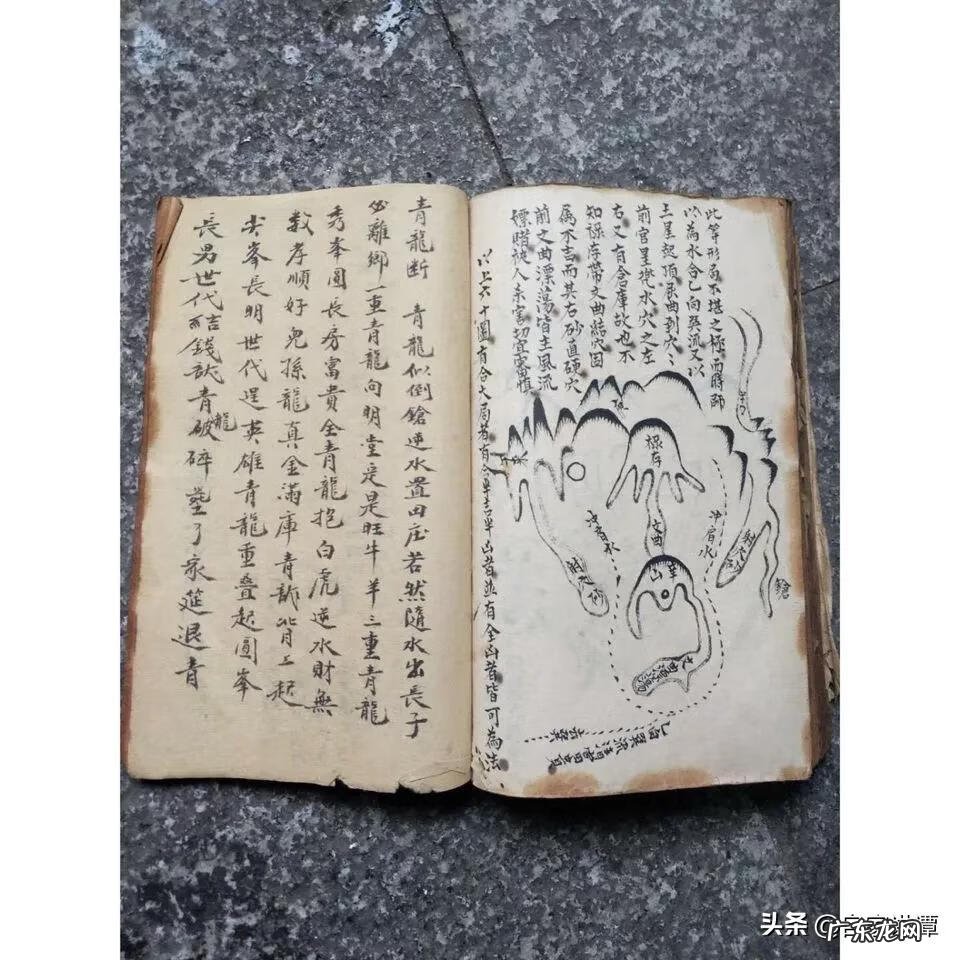 此等形局不堪之極而時師
以為水合乙向癸流又以
土星起頂屈曲到穴穴
前官星兜水穴之左
右又有倉庫故也不
知祿存帶文曲結穴因
屬不吉而其右砂直硬穴
前之曲漂蕩皆主風流
嫖賭誤人未害切宜審慎
祿存
文曲
冲肩水
冲肩水
鎗
以上六十圖有合大局者有合單吉單凶者並有全凶者皆可為法
青龍断 青龍似倒鎗逆水置田庄若然隨水出長子
必離鄉一重青龍向明堂定是旺牛羊三重青龍
秀峯圓長房富貴全青龍抱白虎逆水財無
数孝順好兒孫龍真金滿庫青龍背上起
尖峯長明世代逞英雄青龍重疊起圓峯
長男世代結錢青龍破碎了家筵退青
头条
广东龙网